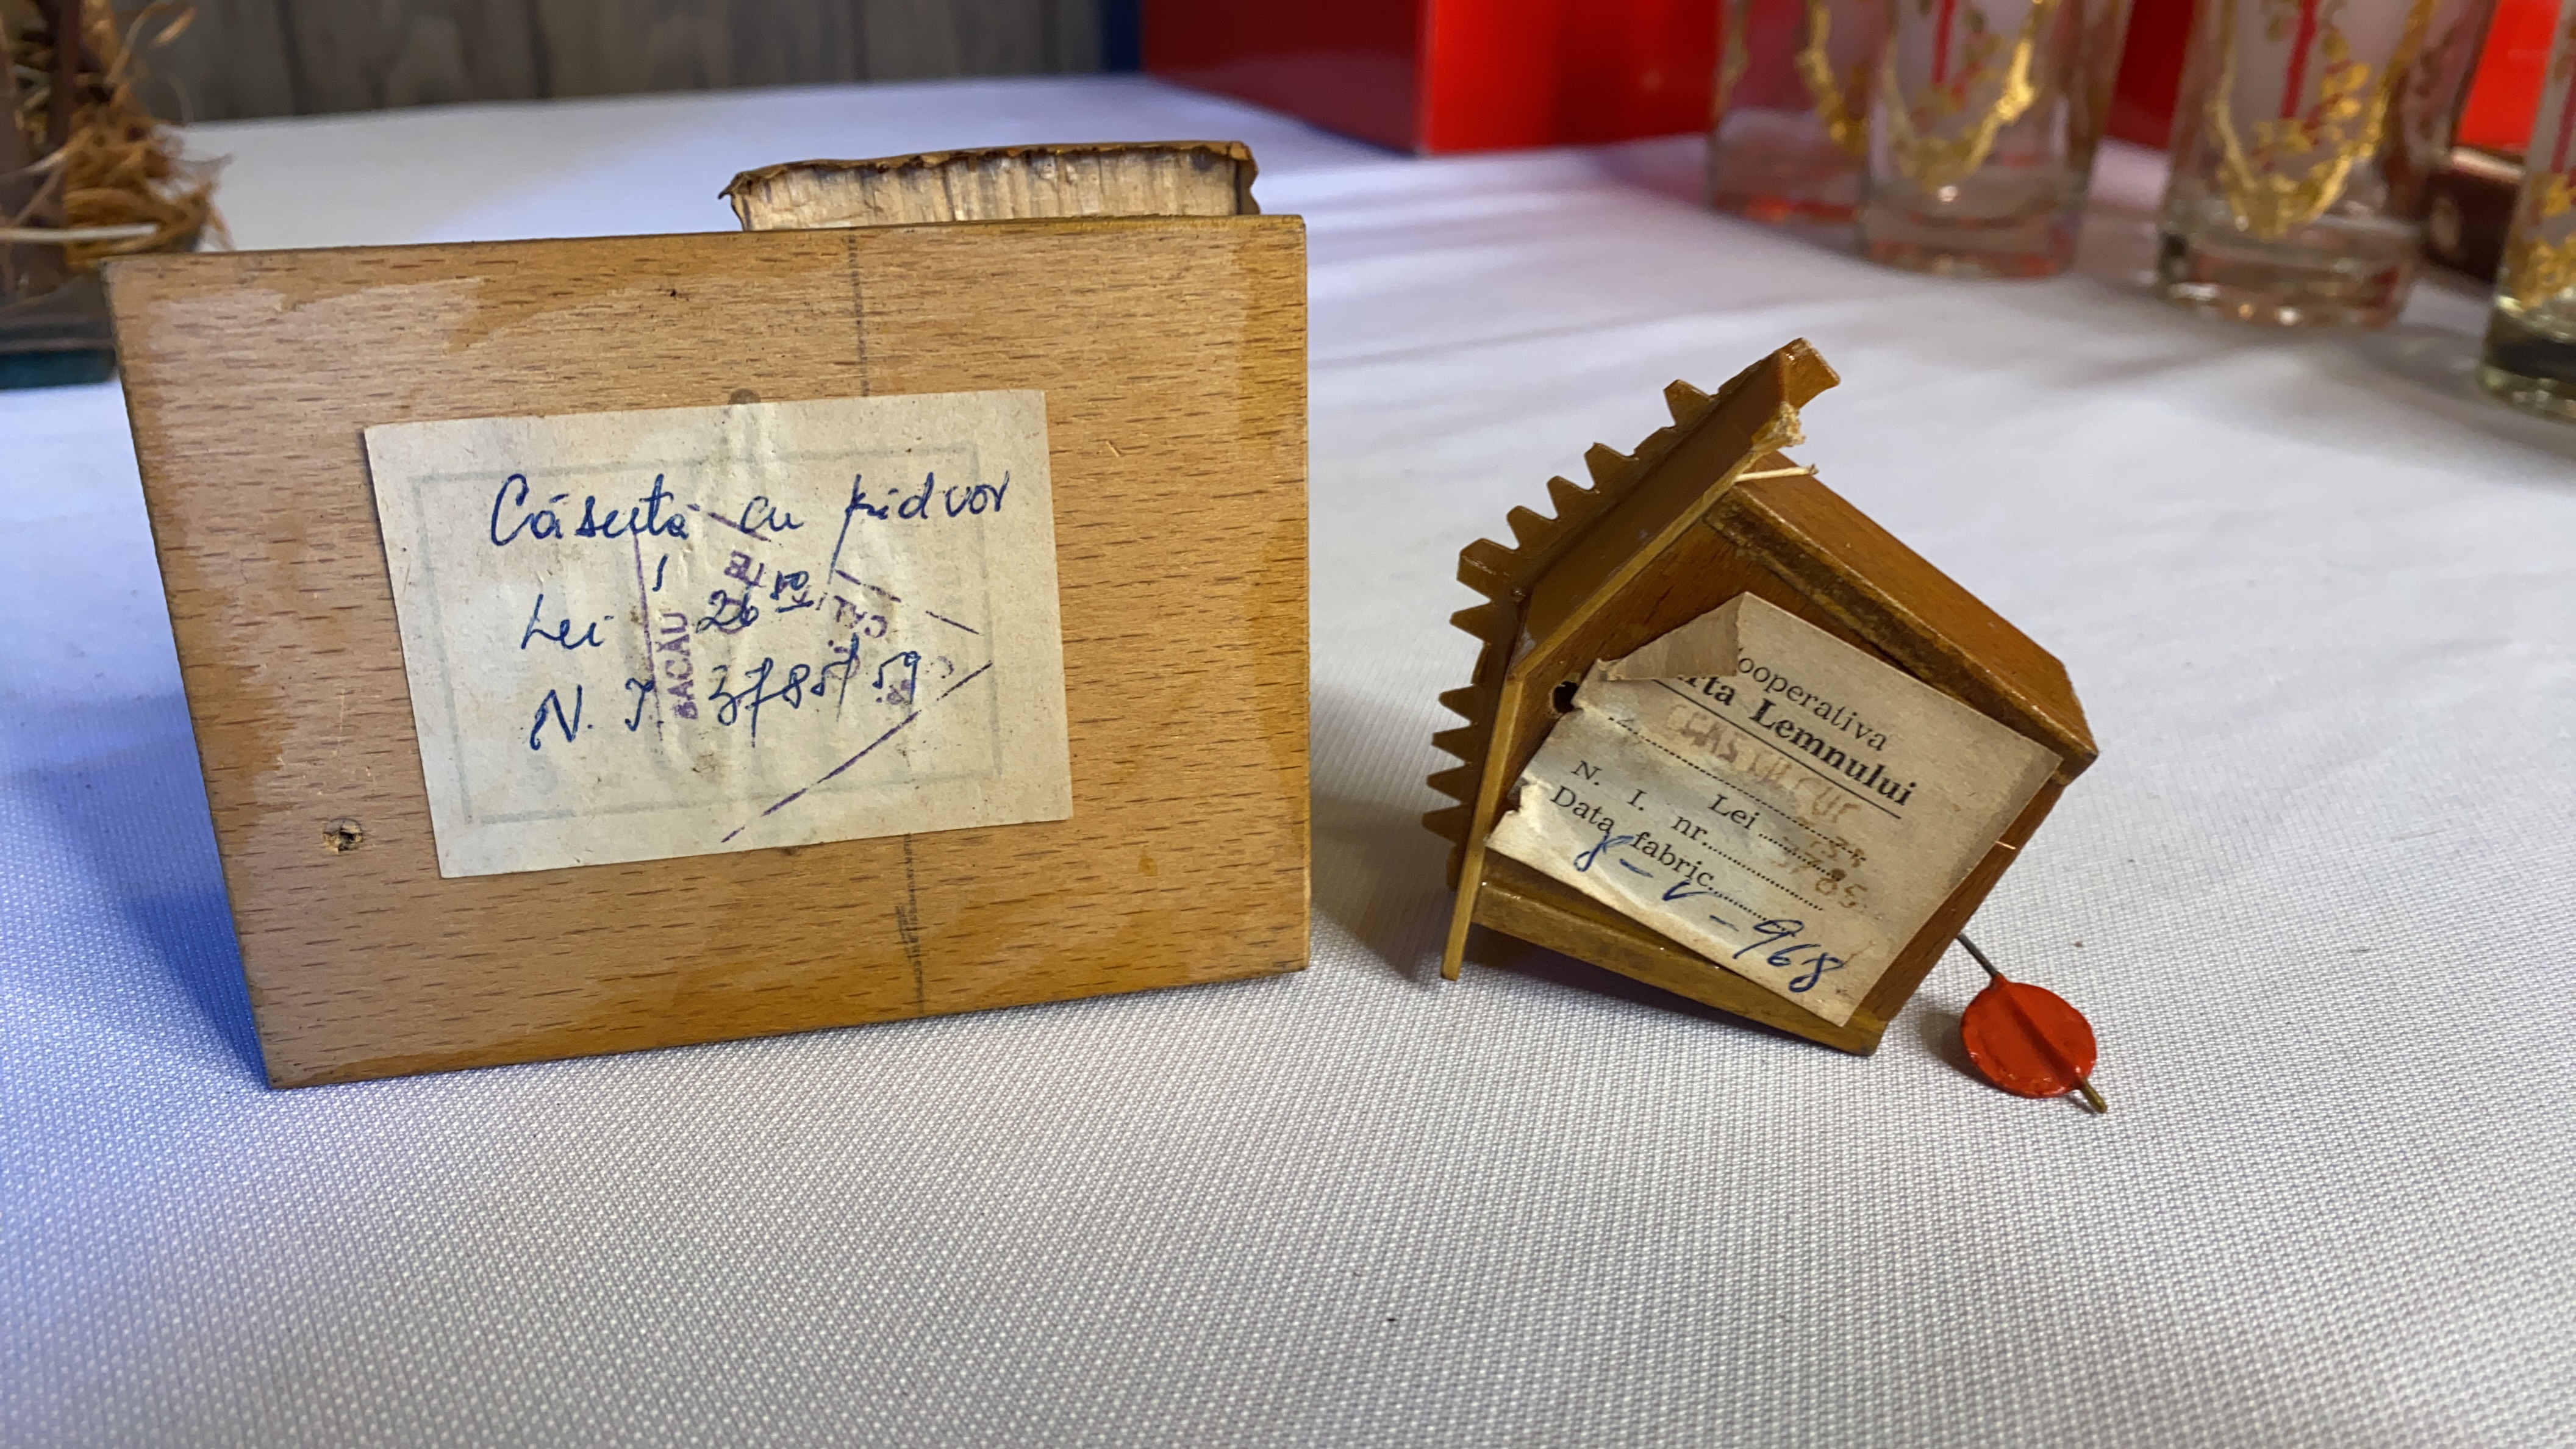 Căsuta cu pridvor
Lei 26
N. I. 3785/59
BACĂU
ooperativa
rta Lemnului
Lei
N. I. nr.
Data fabric.
8-V-968